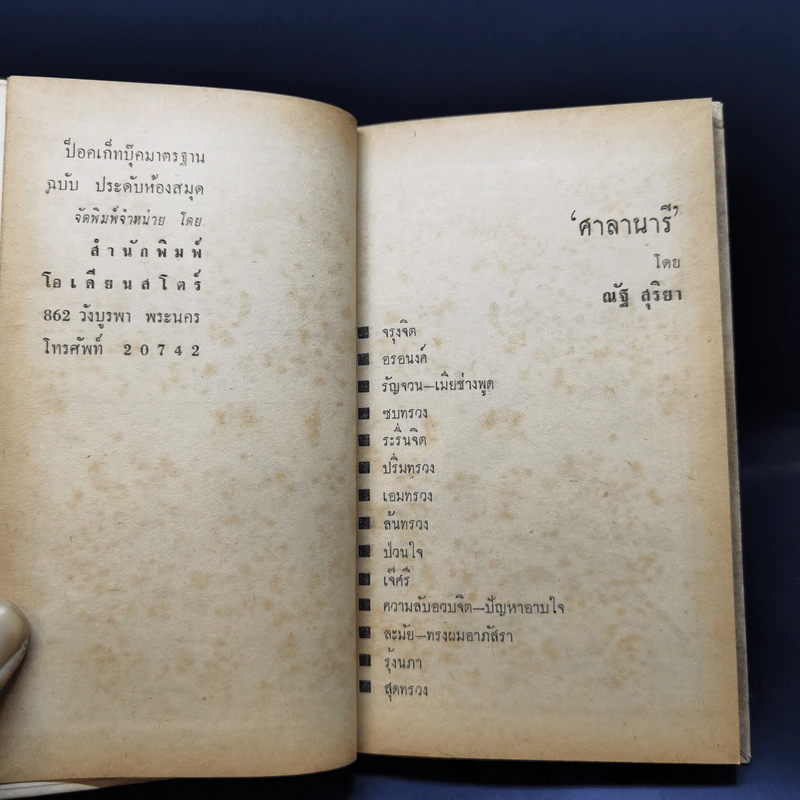 ป็อคเก็ทบุ๊คมาตรฐาน
ฉบับ ประดับห้องสมุด
จัดพิมพ์จำหน่าย โดย
สำนักพิมพ์
โอเดียนสโตร์
862 วังบูรพา พระนคร
โทรศัพท์ 20742
‘ศาลานารี’
โดย
ณัฐ สุริยา
จรุงจิต
อรอนงค์
รัญจวน—เมียช่างพูด
ซบทรวง
ระรื่นจิต
ปริ่มทรวง
เอมทรวง
ล้นทรวง
ป่วนใจ
เจ๊ศรี
ความลับอวบจิต—ปัญหาอาบใจ
ละมัย—ทรงผมอาภัสรา
รุ้งนภา
สุดทรวง